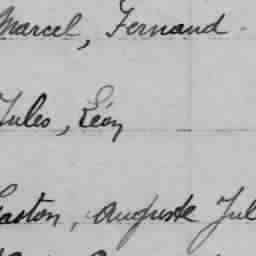 Marcel, Fernand
Jules, Léon
Gaston, Auguste Jul